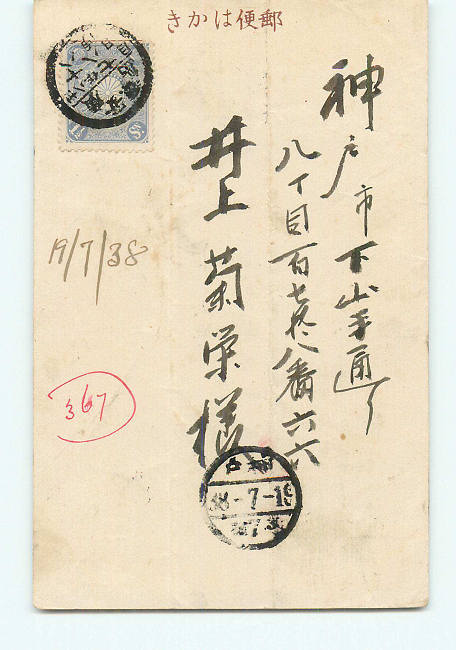 郵便はかき
神戸市下山手通り
八丁目百七拾八番六六
井上菊栄様
19/7/38
367
神戸
38-7-19